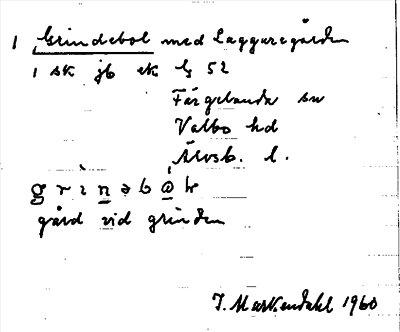 1 Grindebol med Laggaregården
1 sk jb ek G 52
Färgelanda sn
Valbo hd
Älvsb. l.
gård vid grinden
1960